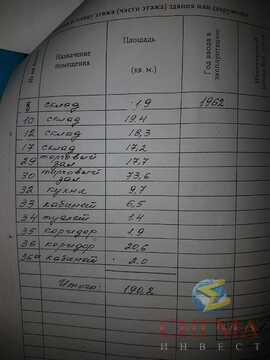 этажа (части этажа) здания или сооружения
Назначение помещения
Площадь (кв. м.)
Год ввода в эксплуатацию
8 склад 19 1962
10 склад 19.4
12 склад 18,3
17 склад 17,2
29 торговый зал 17.7
30 торговый зал 73,6
32 кухня 9,7
33 кабинет 6,5
34 туалет 1.4
35 коридор 1.9
36 коридор 20,6
кабинет 2.0
Итого: 190.2
СИГМА
ИНВЕСТ